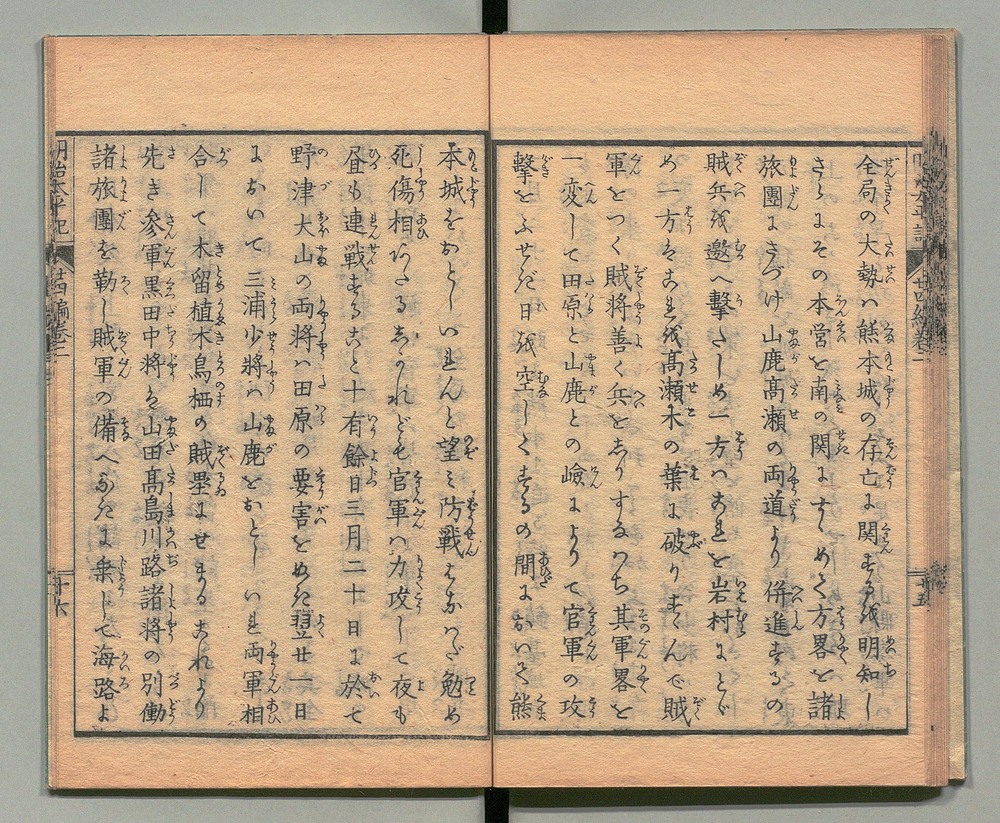 全局の大勢ハ熊本城の存亡に関するを明知し
さらにその本営を南の関にすゝめて方畧を諸
旅團にさづけ山鹿髙瀬の両道より併進するの
賊兵を邀へ擊たしめ一方ハこれを岩村にとゞ
め一方はこれを髙瀬木の葉に破りすゝんで賊
軍をつく賊將善く兵をしりするのち其軍畧を
一変して田原と山鹿との嶮によりて官軍の攻
擊をふせぎ日を空しくするの間において熊
本城をおとしいれんと望み防戦はなハだ勉め
死傷相あたるしかれども官軍ハ力攻して夜も
昼も連戦すること十有餘日三月二十日に於て
野津大山の両將ハ田原の要害をぬき翌廿一日
において三浦少將ハ山鹿をおとしいれ両軍相
合して木留植木鳥栖の賊塁にせまるこれより
先き參軍黒田中將は山田髙島川路諸將の別働
諸旅團を勒し賊軍の備へなきに乗じて海路よ
明治太平記
廿四編巻二
十六
廿四編巻二
十五